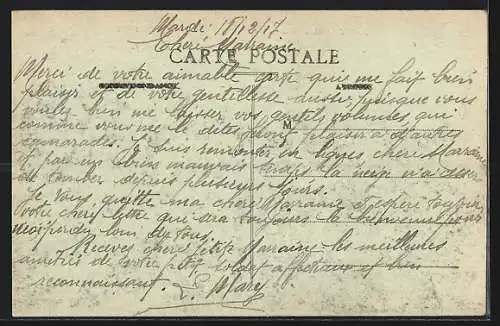 Mardi 18/12/17
Chère Marraine
CARTE POSTALE
Merci de votre aimable carte qui me fait bien
plaisir et de votre gentillesse aussi, puisque vous
voulez bien me laisser vos gentils volumes, qui
comme vous me le dites feront plaisir à d'autres
camarades. Je suis remonter en lignes chère Marraine
et par un bien mauvais temps la neige n'a cesser
de tomber depuis plusieurs jours.
Je vous quitte ma chère Marraine espère toujours
votre chère lettre qui sera toujours la bienvenue pour
perdu loin de tous.
Recevez chère petite Marraine les meilleures
amitiés de votre petit soldat affectueux et bien
reconnaissant.
M